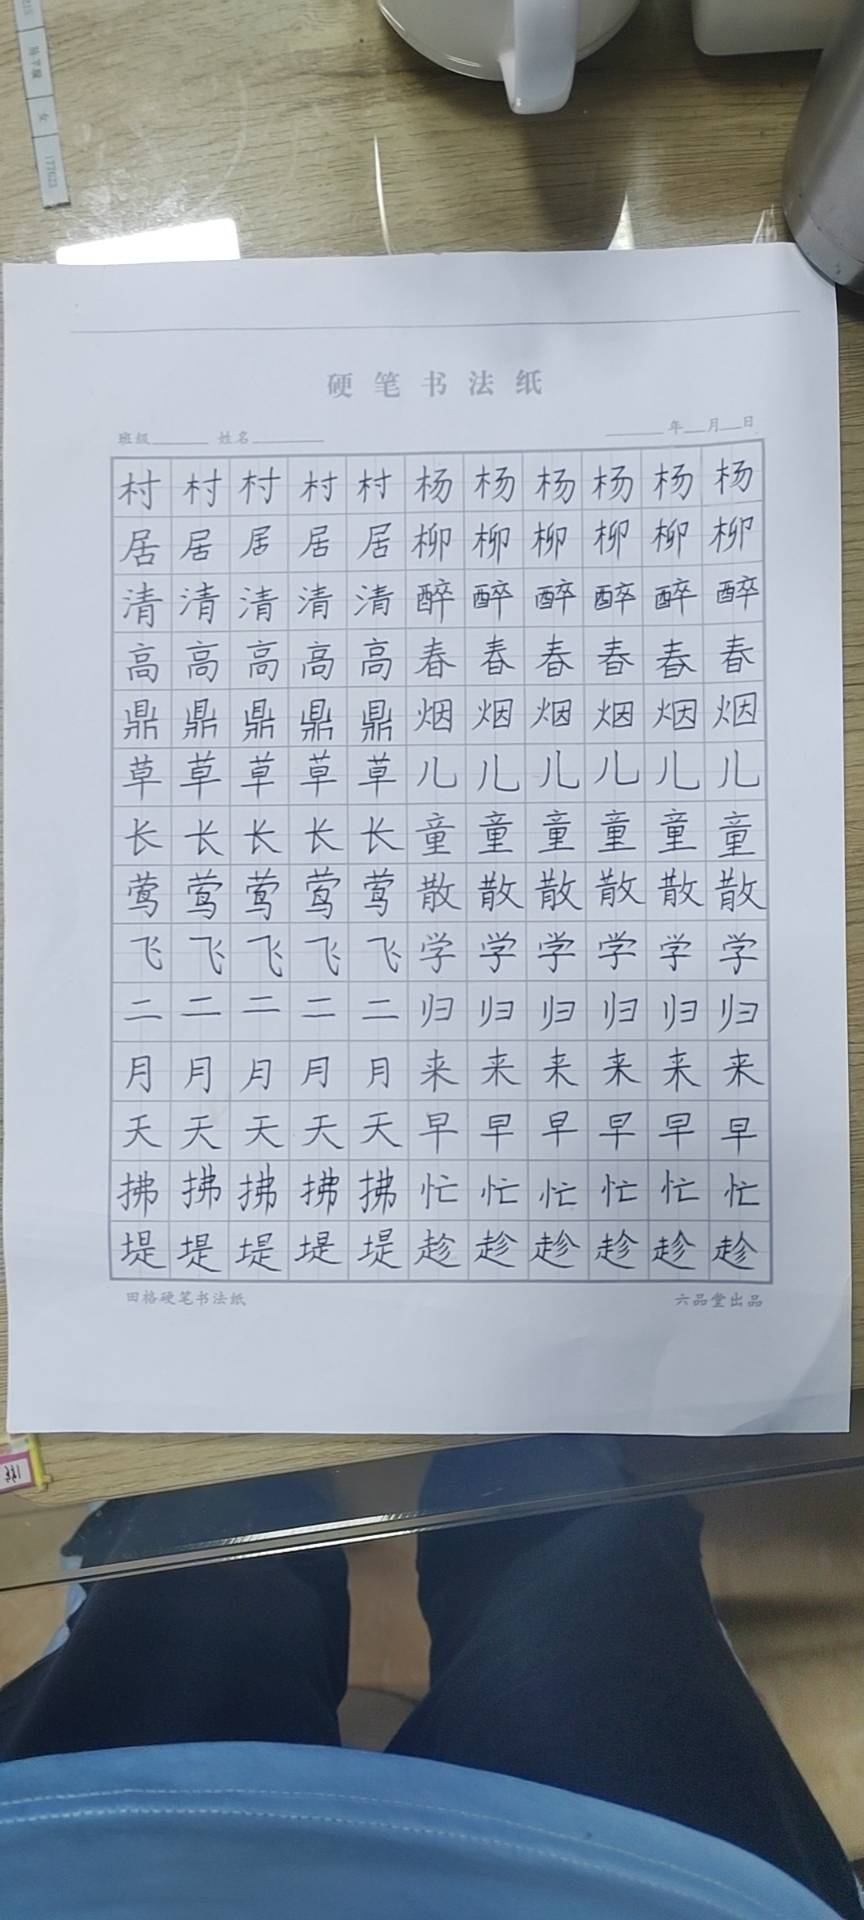 硬笔书法纸
班级 姓名 年 月 日
村村村村村杨杨杨杨杨杨
居居居居居柳柳柳柳柳柳
清清清清清醉醉醉醉醉醉
高高高高高春春春春春春
鼎鼎鼎鼎鼎烟烟烟烟烟烟
草草草草草儿儿儿儿儿儿
长长长长长童童童童童童
莺莺莺莺莺散散散散散散
飞飞飞飞飞学学学学学学
二二二二二归归归归归归
月月月月月来来来来来来
天天天天天早早早早早早
拂拂拂拂拂忙忙忙忙忙忙
堤堤堤堤堤趁趁趁趁趁趁
田格硬笔书法纸 六品堂出品